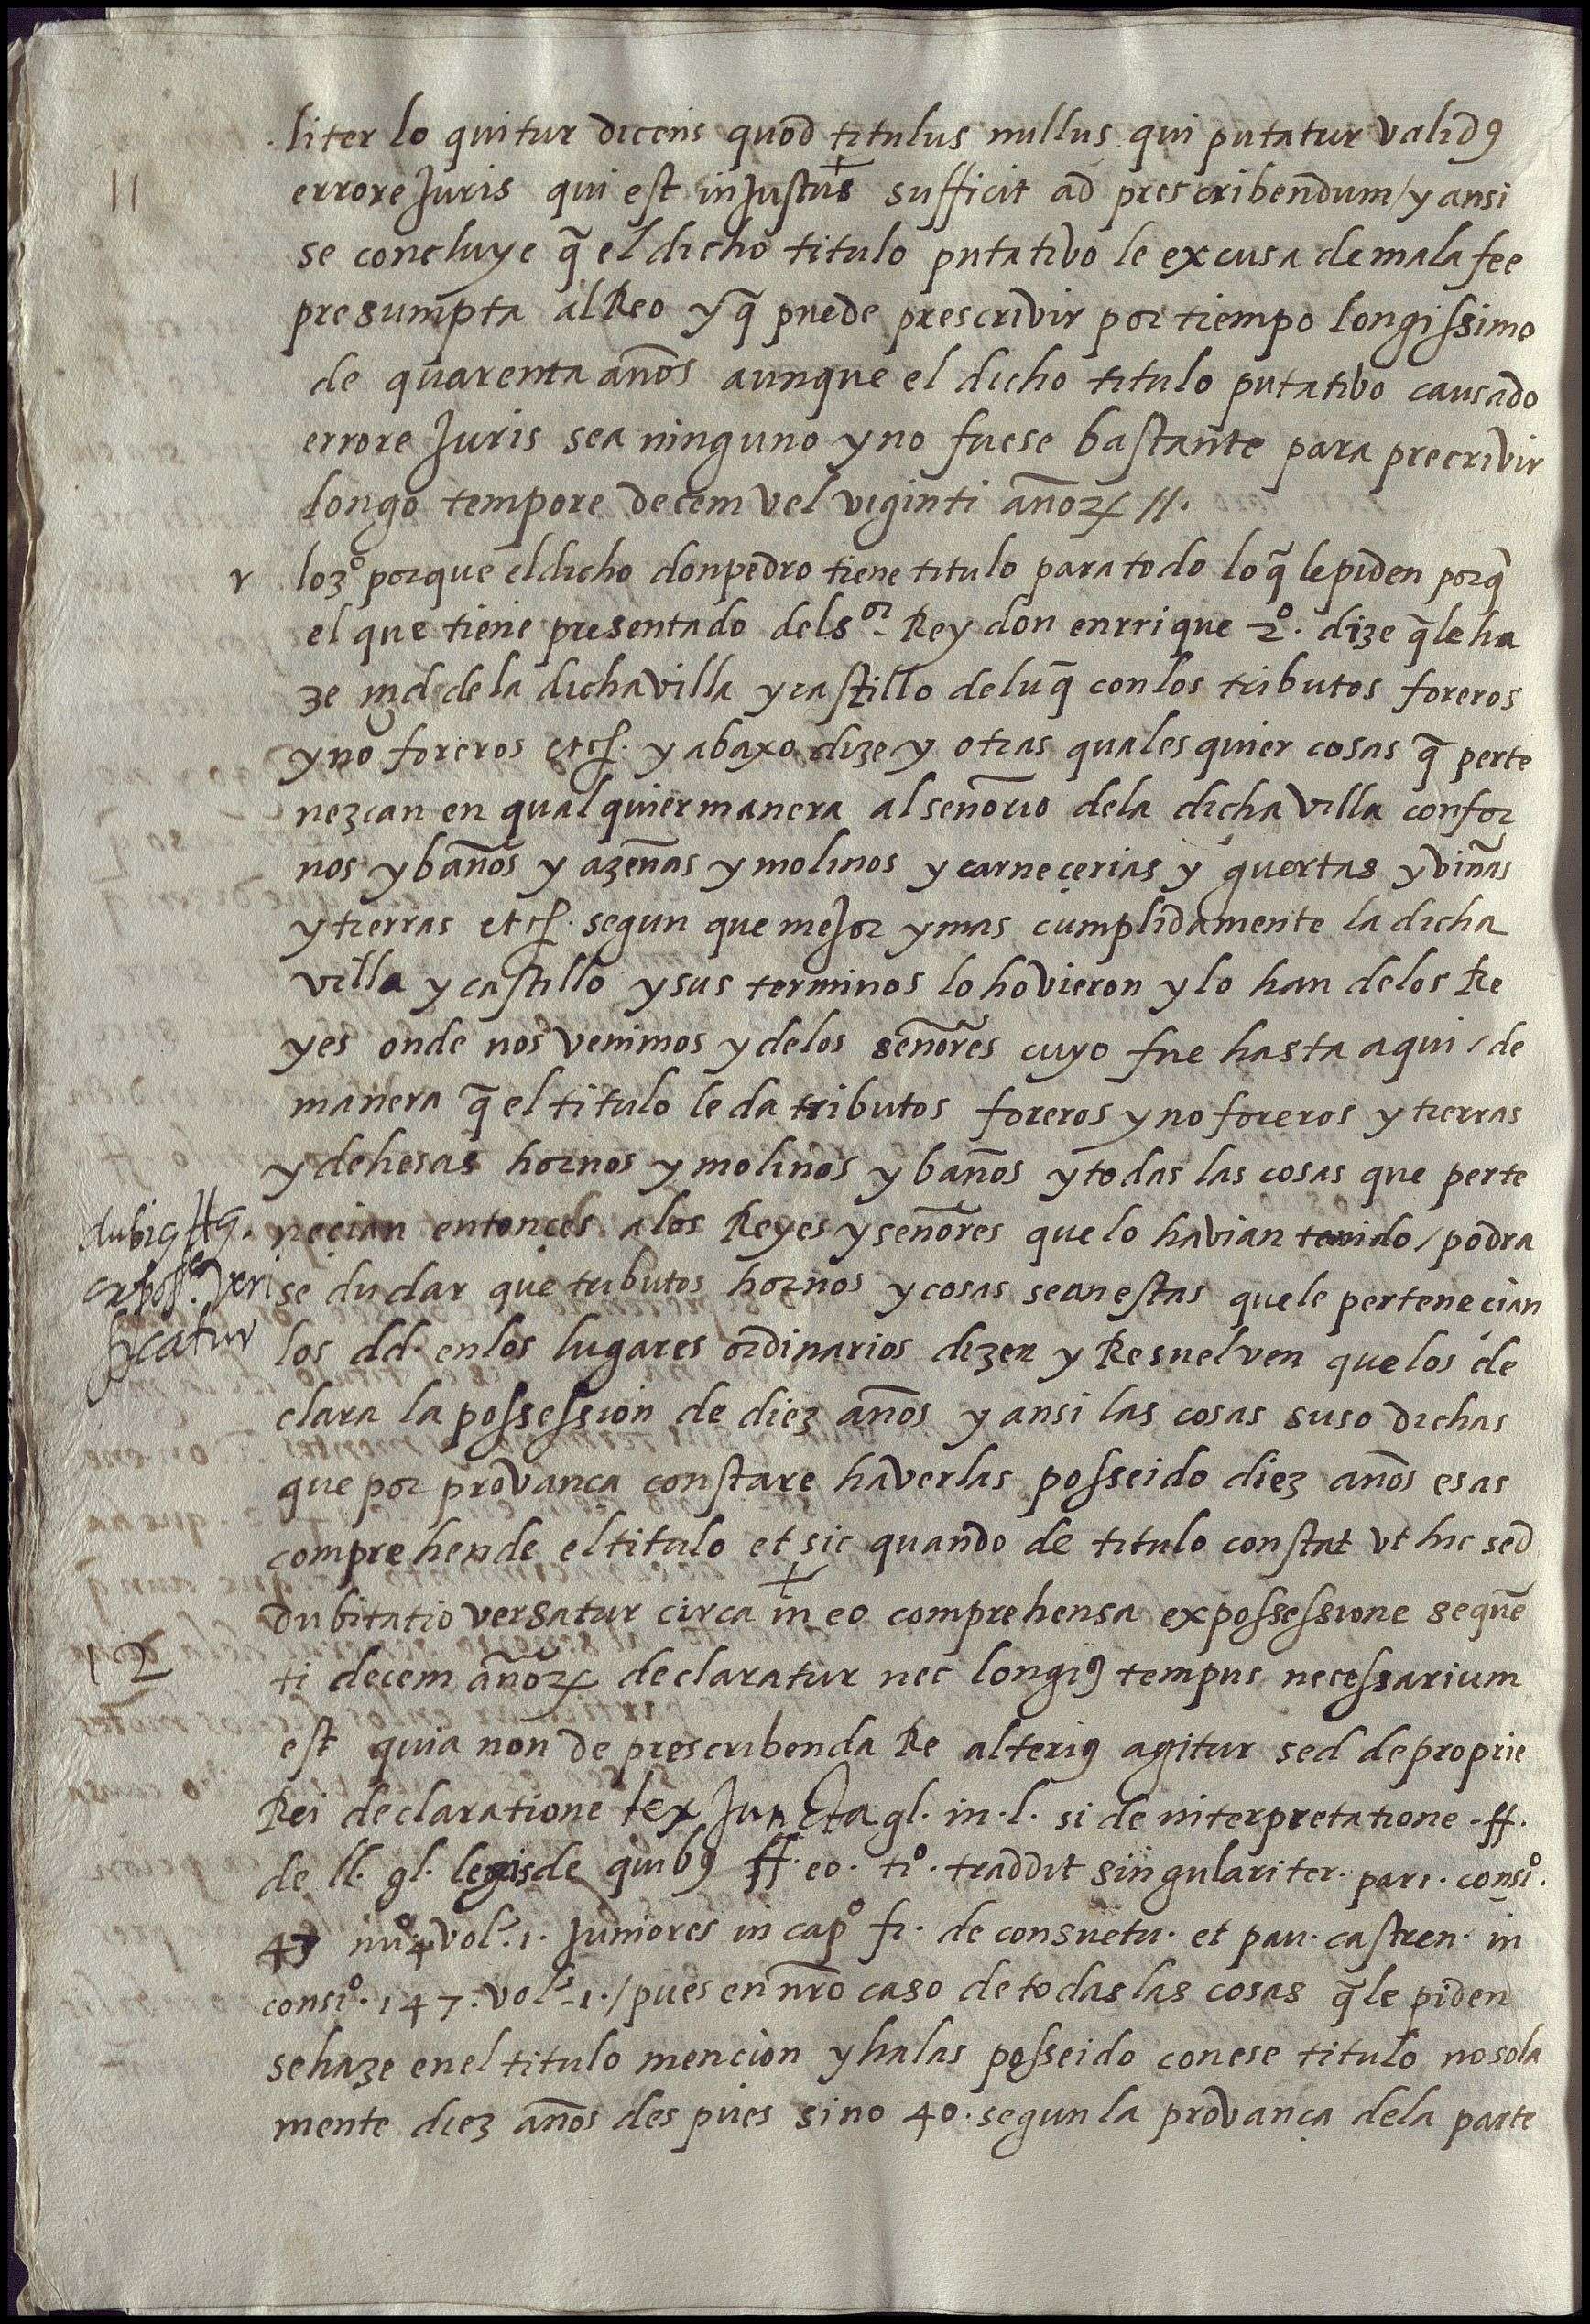 liter loquitur dicens quod titulus nullus qui putatur validꝰ
11
errore Juris qui est inJustus sufficit ad prescribendum / y ansi
se concluye q̃ el dicho titulo putativo le excusa de mala fee
presumpta al Reo y q̃ puede prescrivir por tiempo longissimo
de quarenta años aunque el dicho titulo putativo causado
errore Juris sea ninguno y no fuese bastante para precrivir
longo tempore decem vel viginti añoꝝ //.
r lo 3º porque el dicho don pedro tiene titulo para todo lo q̃ le piden porq̃
el que tiene presentado del sor. Rey don enrrique 2º. dize q̃ le ha
ze mꝛd de la dicha villa y castillo de luq̃ con los tributos foreros
y no foreros etcꝭ. y abaxo dize y otras quales quier cosas q̃ perte
nezcan en qual quier manera al señorio de la dicha villa con for
nos y baños y azeñas y molinos y carneçerias y guertas y viñas
y tierras etcꝭ. segun que meJor y mas cumplidamente la dicha
villa y castillo y sus terminos lo hovieron y lo han de los Re
yes onde nos venimos y de los señores cuyo fue hasta aqui / de
manera q̃ el titulo le da tributos foreros y no foreros y tierras
y dehesas hornos y molinos y baños y todas las cosas que perte
necian entonces a los Reyes y señores que lo havian tenido / podra
se dudar que tributos hornos y cosas sean estas que le pertenecian
veri
ficatur
los dd. en los lugares ordinarios dizen y Resuelven que los de
clara la possession de diez años y ansi las cosas suso dichas
que por provança constare haverlas posseido diez años esas
comprehende el titulo et sic quando de titulo constat vt hic sed
dubitatio versatur circa in eo comprehensa ex possessione sequẽ
12
ti decem añoꝝ declaratur nec longiꝰ tempus necessarium
est quia non de prescribenda Re alteriꝰ agitur sed de proprie
Rei declaratione tex Juncta gl. in. l. si de interpretatione .ff.
de ll. gl. legis de quibꝰ ff. eo. tiº. traddit singulariter. pari. consiº.
43 nuº 4 vol. 1. Juniores in capº fi. de consuetu. et pau. castren. in
consiº. 147. vol. 1. / pues en nr̃o caso de todas las cosas q̃ le piden
se haze en el titulo mencion y halas posseido con ese titulo no sola
mente diez años des pues sino 40. segun la provança de la parte